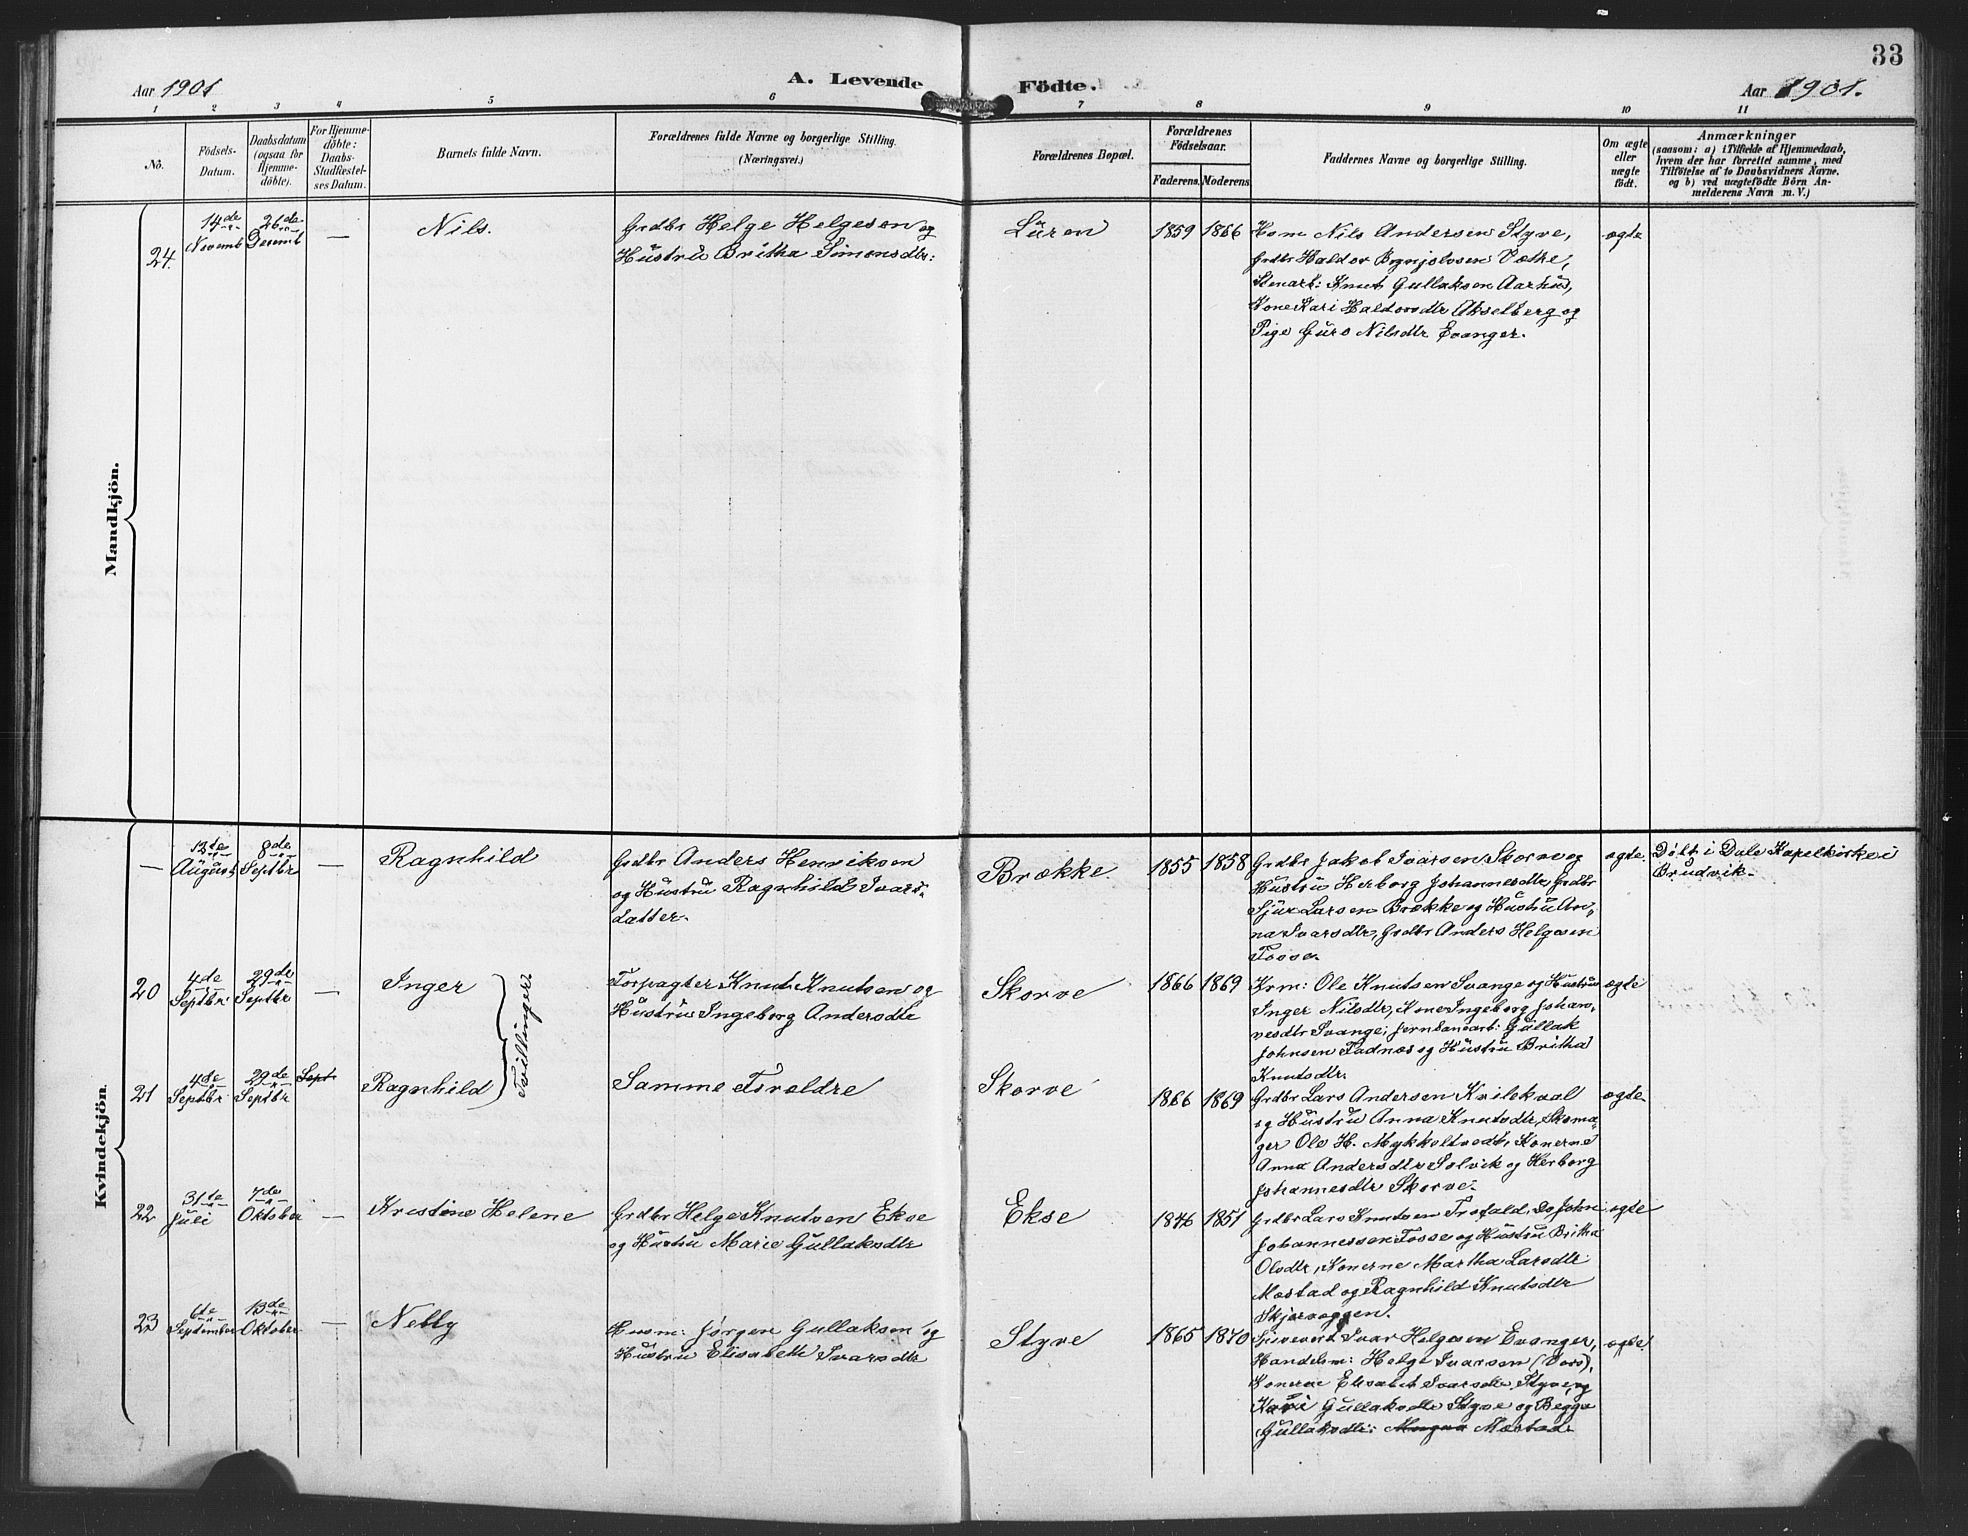 33
Aar 1901
A. Levende
Födte.
Aar 1901.
1 2 3 4 5 6 7 8 9 10 11
No.
Födsels-
Datum.
Daabsdatum
(ogsaa for
Hjemme-
döbte).
For Hjemme-
döbte:
Daabs-
Stadfestel-
ses Datum.
Barnets fulde Navn.
Forældrenes fulde Navne og borgerlige Stilling.
(Næringsvei.)
Forældrenes Bopæl.
Forældrenes
Födselsaar.
Faderens. Moderens
Faddernes Navne og borgerlige Stilling.
Om ægte
eller
uægte
födt.
Anmærkninger
(saasom: a) i Tilfælde af Hjemmedaab,
hvem der har forrettet samme, med
Tilföielse af to Daabsvidners Navne,
og b) ved uægtefödte Börn An-
melderens Navn m. V.)
Mandkjön.
24.
14de
Novemb
26de
Decemb
—
Nils.
Grdbr Helge Helgesen og
Hustru Britha Simonsdtr:
Luren
1859 1866
Husm Nils Andersen Styve,
Grdbr Haldor Brynjolvsen Vætke,
Stenarb: Knut Gullaksen Aarhus,
Kone Kari Haldorsdtr Akselberg og
Pige Guro Nilsdtr Evanger.
ægte
Kvindekjön
—
13te
August
8de
Septbr
—
Ragnhild
Grdbr Anders Henriksen
og Hustru Ragnhild Ivars-
datter.
Brække
1855 1858
Grdbr Jakob Ivarsen Skorve og
Hustru Herborg Johannesdtr, Grdbr
Sjur Larsen Brække og Hustru An-
na Ivarsdtr, Grdbr Anders Helgesen
Fosse.
ægte.
Döbt i Dale Kapelkirke i
Bruvik.
20
4de
Septbr.
29de
Septbr
—
Inger
Tvillinger
Forpagter Knut Knutsen og
Hustru Ingeborg Andersdtr
Skorve
1866 1869
Krm: Ole Knutsen Evange og Hustru
Inger Nilsdtr, Kone Ingeborg Johan-
nesdtr Evange, Jernbanearb: Gullak
Johnsen Fadnes og Hustru Britha
Knutsdtr.
ægte
21
4de
Septbr
29de
Septbr
Sept
Ragnhild
Samme Forældre
Skorve
1866 1869
Grdbr Lars Andersen Kvilekval
og Hustru Anna Knutsdtr, Skoma-
ger Ole H. Mykkeltvedt, Konerne
Anna Andersdtr Solvik og Herborg
Johannesdtr Skorve.
ægte
22
31te
Juli
7de
Oktober
—
Kristine Helene
Grdbr Helge Knutsen Ekse
og Hustru Marie Gullaksdtr
Ekse
1846 1851
Grdbr Lars Knutsen Trefald, Do John
Johannessen Fosse og Hustru Britha
Olsdtr, Konerne Martha Larsdtr
Mestad og Ragnhild Knutsdtr
Skjerveggen.
ægte
23
6te
September
13de
Oktober
—
Nelly
Husm: Jørgen Gullaksen og
Hustru Elisabeth Ivarsdtr
Styve
1865 1870
Ivar Helgesen Evanger,
Handelsm: Helge Ivarsen (Voss),
Konerne Elisabet Ivarsdtr Styve, og
Kari Gullaksdtr Styve og Begga
Gullaksdtr: Mestad
ægte.